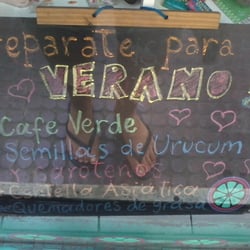 eparate para
VERANO
Cafe Verde
Semillas de Urucum
y Carotenos
Centella Asiatica
Quemadores de grasa